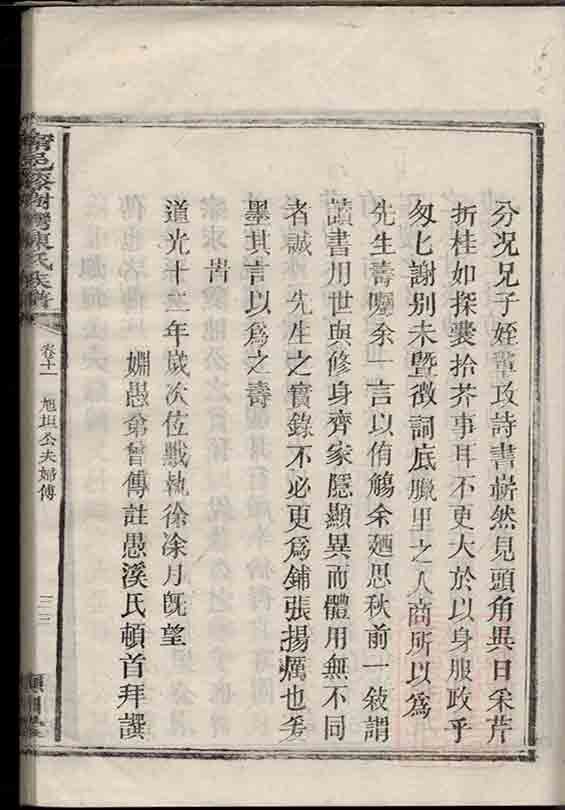 分况兄子姪輩攻詩書嶄然見頭角異日采芹
折桂如探囊拾芥事耳不更大於以身服政乎
匆匕謝别未暨徴詞底臘里之人商所以為
先生壽囑余一言以侑觴余廼思秋前一敍謂
讀書用世與修身齊家隱顯異而體用無不同
者誠　先生之實錄不必更爲鋪張揚厲也爰
墨其言以爲之壽
旹
道光十二年歲次位戰執徐涂月旣望
姻愚弟曾傳註愚溪氏頓首拜譔
甯邑 陳氏族譜
卷十一
旭垣公夫婦傳